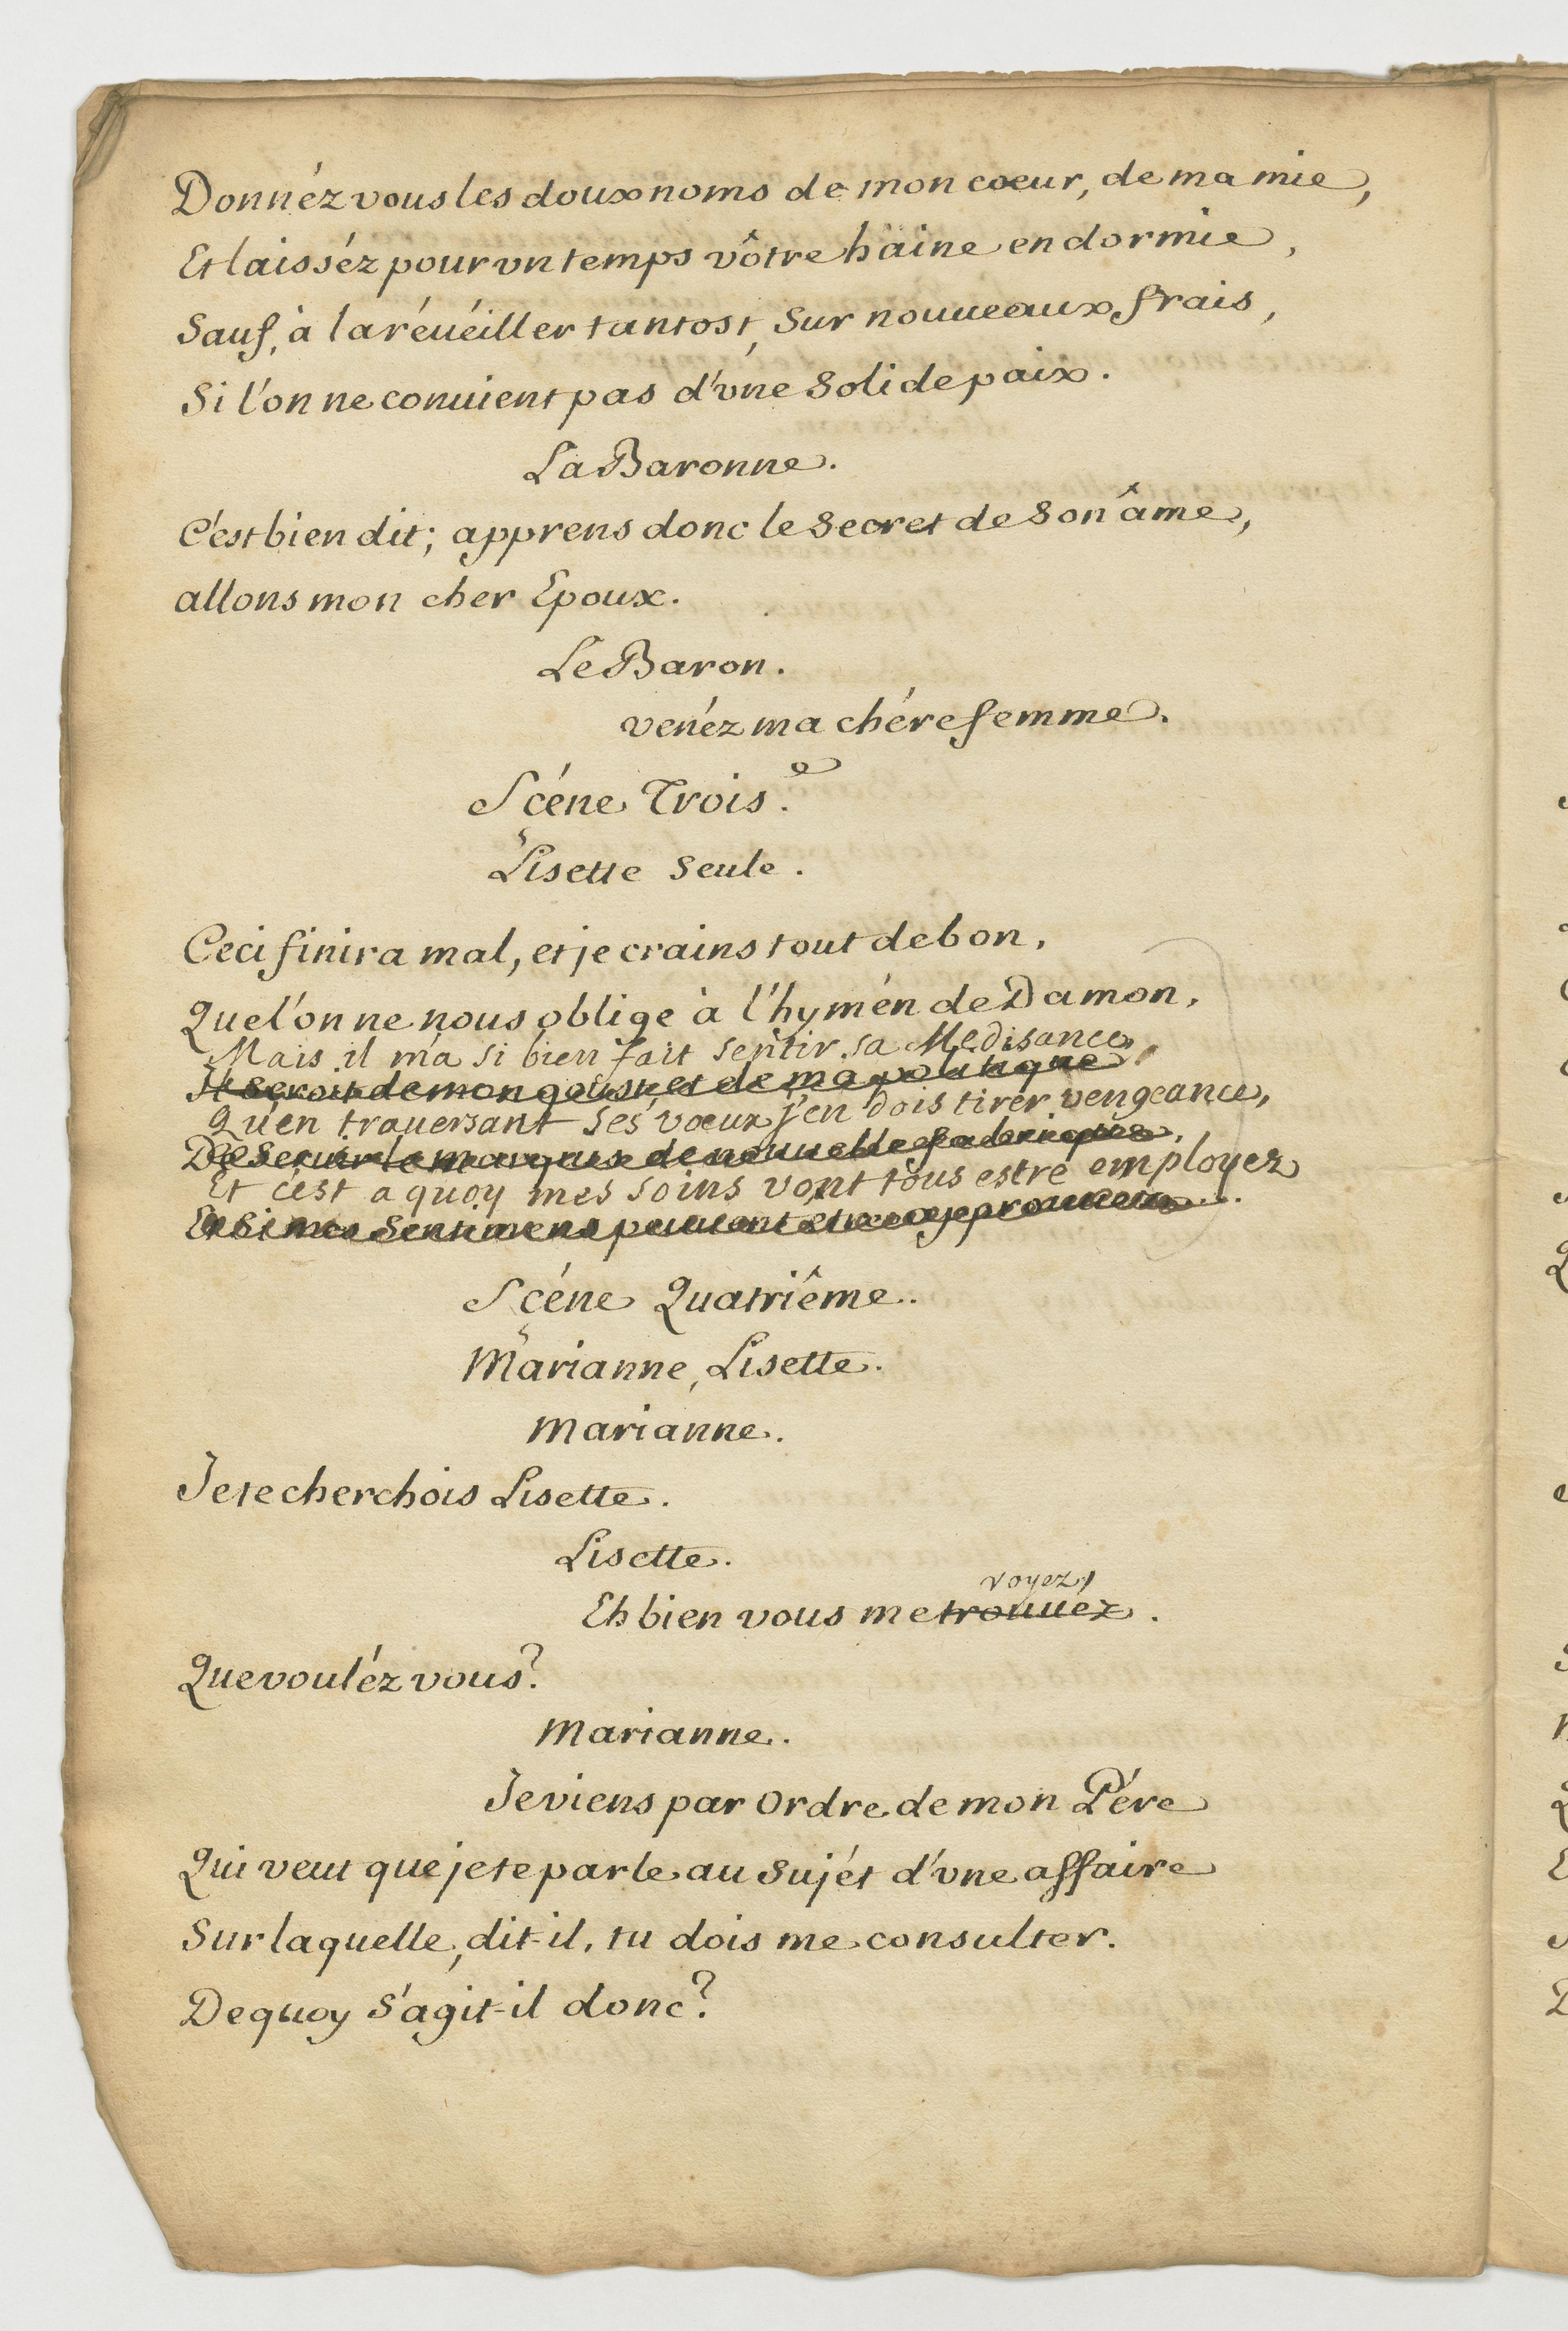 Donnéz vous les doux noms de mon coeur, de ma mie,
Et laisséz pour vn temps vôtre häine endormie,
Sauf, à la réuéiller tantost, Sur nouueaux frais,
Si l'on ne conuient pas d'vne Solide paix.
La Baronne.
C'est bien dit; apprens donc le Secret de Son âme,
allons mon cher Epoux.
Le Baron.
venéz ma chére femme.
Scéne Trois.e
Lisette Seule.
Ceci finira mal, et je crains tout de bon,
Que l'on ne nous oblige à l'hymén de Damon,
Mais il m'a si bien fait sentir sa Medisance,
Il Seroit de mon goust, et de ma politique
Qu'en trauersant ses vœux j'en dois tirer vengeance,
De Seruir le marquis de nouuelle
Et c'est a quoy mes soins vont tous estre employez
Et Si mes Sentimens peuuent être
Scéne Quatriême.
Marianne, Lisette.
Marianne.
Je te cherchois Lisette.
Lisette.
voyez,
Eh bien vous me trouuéz.
Que vouléz vous?
Marianne.
Je viens par Ordre de mon Pére
Qui veut que je te parle au Sujét d'vne affaire
Sur laquelle, dit-il, tu dois me consulter.
De quoy S'agit-il donc?